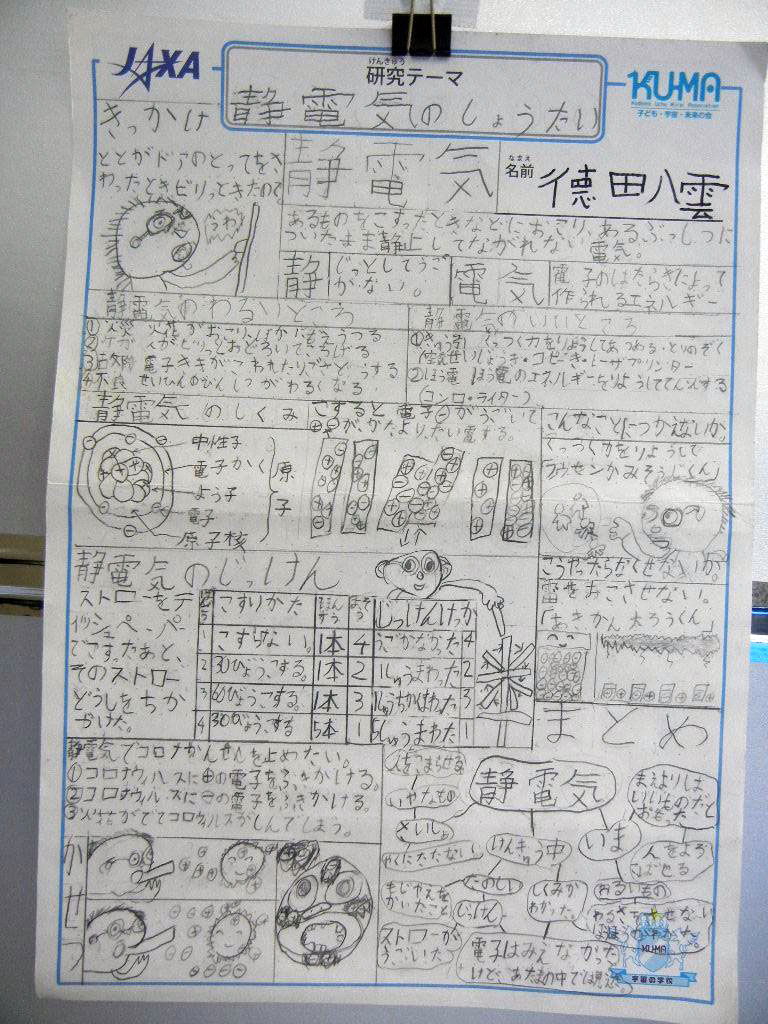 JAXA
けんきゅう
研究テーマ
静電気のしょうたい
KU-MA
子ども・宇宙・未来の会
なまえ
名前
徳田八雲
きっかけ
ととがドアのとってをさ
わったときビリっときたので
うわっ
静電気
あるものをこすったときなどにおこり、あるぶっしつに
ついたまま静止してながれない電気。
静
じっとしてうご
かない。
電気
電子のはたらきによって
作られるエネルギー
静電気のわるいところ
①火災
②ケガ
人がビリッとおどろいて
③
電子ききがこわれたりごさどうする
④不良
せいひんのひんしつがわるくなる
静電気のいいところ
くっつく力をりようしてあつめる・とりのぞく
(空気せいじょうき・コピーき・レーザプリンター
②ほう電
ほう電のエネルギーをりようしててんかする
(コンロ・ライター)
静電気のしくみ
こすると電子⊖がうごいて
⊕⊖がかたよりたい電する。
中性子
電子かく
よう子
電子
原子核
原子
こんなことにつかえないか。
くっつく力をりようして
こうやったらなくせないか。
雷をおこさせない。
「あきかん太ろうくん」
静電気のじっけん
ストローをテ
ィッシュペーパー
でこすったあと、
そのストロー
どうしをちか
づけた。
こすりかた
じっけんけっか
1 こすらない。 1本 4 うごかなかった 4
2 30びょうこする。 1本 2 1しゅうまわった 2
3 60びょうこする。 1本 3
4 30びょうこする 5本 1 5しゅうまわた 1
静電気でコロナかんせんを止めたい。
①コロナウィルスに⊕の電子をふきかける。
②コロナウィルスに⊖の電子をふきかける。
③火花がでてコロウィルスがしんでしまう。
かせつ
まとめ
静電気
人をこまらせる
いやなもの
さいしょ
やくにたたない
けんきゅう中
たのしい
じっけん
ストローが
うごいた
しくみが
わかった。
電子はみえなかった
けど、あたまの中では見えた。
いま
まえよりは
いいものだと
おもった
人をよろ
こばせる
わるいもの
KU-MA
宇宙の学校